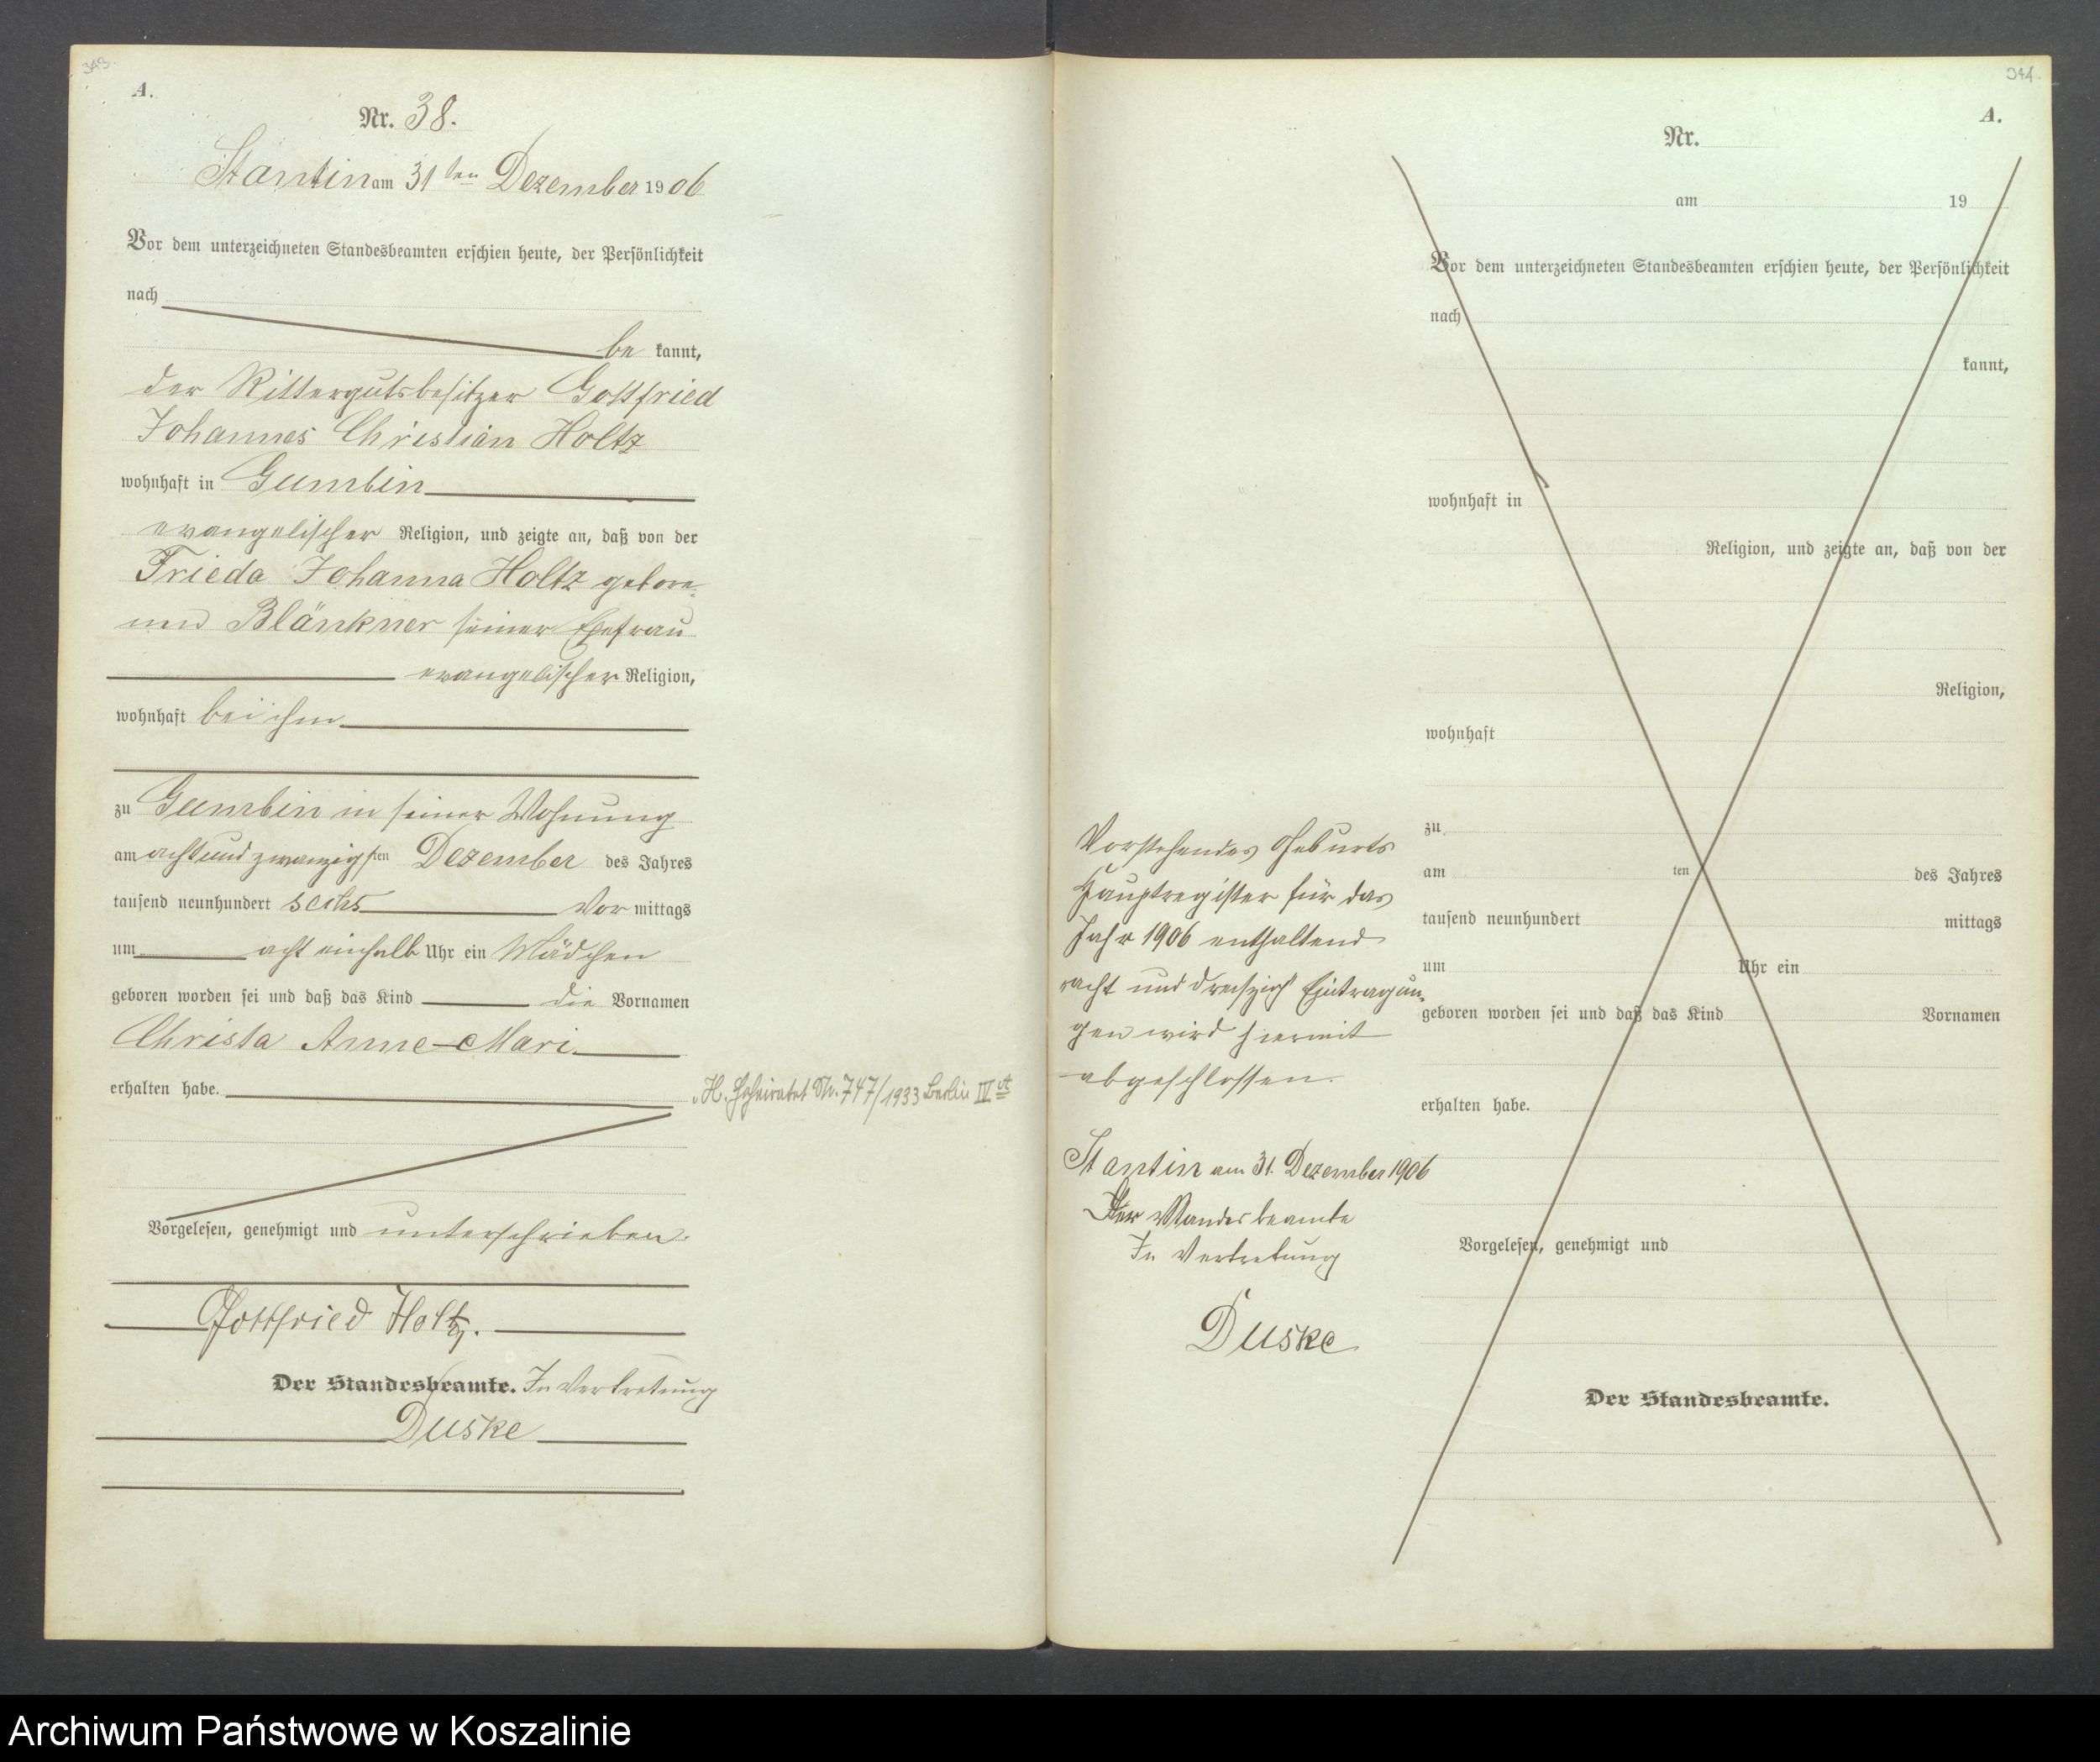 343.
A.
Nr. 38.
Stantin am 31ten Dezember 1906
Vor dem unterzeichneten Standesbeamten erschien heute, der Persönlichkeit
nach
be kannt,
der Rittergutsbesitzer Gottfried
Johannes Christian Holtz
wohnhaft in Gumbin
evangelischer Religion, und zeigte an, daß von der
Frieda Johanna Holtz gebore-
nen Blänkner seiner Ehefrau
evangelischer Religion,
wohnhaft bei ihm
zu Gumbin in seiner Wohnung
am achtundzwanzigsten Dezember des Jahres
tausend neunhundert sechs Vor mittags
um acht einhalb Uhr ein Mädchen
geboren worden sei und daß das Kind die Vornamen
Christa Anne-Mari
erhalten habe.
H. Geheiratet Nr. 747/1933 Berlin IV a
Vorgelesen, genehmigt und unterschrieben.
Gottfried Holtz.
Der Standesbeamte. In Vertretung
Duske
344.
A.
Nr.
am 19
Vor dem unterzeichneten Standesbeamten erschien heute, der Persönlichkeit
nach
kannt,
wohnhaft in
Religion, und zeigte an, daß von der
Religion,
wohnhaft
zu
am ten des Jahres
tausend neunhundert mittags
um Uhr ein
geboren worden sei und daß das Kind Vornamen
erhalten habe.
Vorgelesen, genehmigt und
Der Standesbeamte.
Vorstehendes Geburts
Hauptregister für das
Jahr 1906 enthaltend
acht und dreißig Eintragun-
gen wird hiermit
abgeschlossen.
Stantin am 31. Dezember 1906
Der Standesbeamte
In Vertretung
Duske
Archiwum Państwowe w Koszalinie